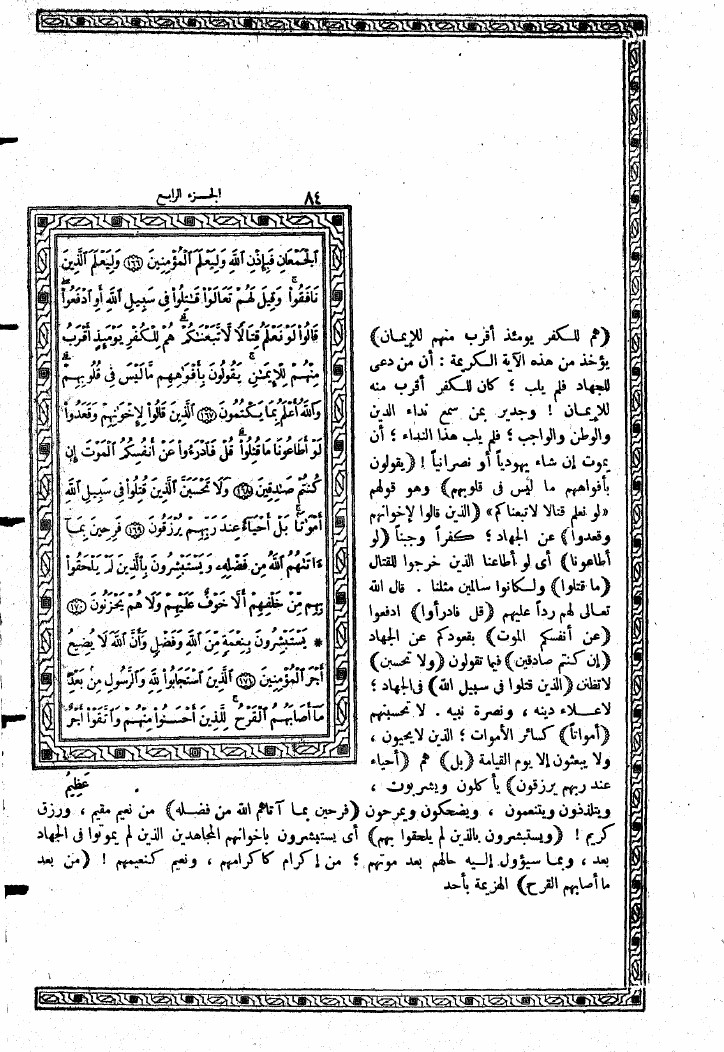 ٨٤ الجزء الرابع
ٱلْجَمْعَانِ فَبِإِذْنِ ٱللَّهِ وَلِيَعْلَمَ ٱلْمُؤْمِنِينَ ١٦٦ وَلِيَعْلَمَ ٱلَّذِينَ
نَافَقُوا۟ وَقِيلَ لَهُمْ تَعَالَوْا۟ قَـٰتِلُوا۟ فِى سَبِيلِ ٱللَّهِ أَوِ ٱدْفَعُوا۟
قَالُوا۟ لَوْ نَعْلَمُ قِتَالًا لَّٱتَّبَعْنَـٰكُمْ هُمْ لِلْكُفْرِ يَوْمَئِذٍ أَقْرَبُ
مِنْهُمْ لِلْإِيمَـٰنِ يَقُولُونَ بِأَفْوَٰهِهِم مَّا لَيْسَ فِى قُلُوبِهِمْ
وَٱللَّهُ أَعْلَمُ بِمَا يَكْتُمُونَ ١٦٧ ٱلَّذِينَ قَالُوا۟ لِإِخْوَٰنِهِمْ وَقَعَدُوا۟
لَوْ أَطَاعُونَا مَا قُتِلُوا۟ قُلْ فَٱدْرَءُوا۟ عَنْ أَنفُسِكُمُ ٱلْمَوْتَ إِن
كُنتُمْ صَـٰدِقِينَ ١٦٨ وَلَا تَحْسَبَنَّ ٱلَّذِينَ قُتِلُوا۟ فِى سَبِيلِ ٱللَّهِ
أَمْوَٰتًۢا بَلْ أَحْيَآءٌ عِندَ رَبِّهِمْ يُرْزَقُونَ ١٦٩ فَرِحِينَ بِمَآ
ءَاتَىٰهُمُ ٱللَّهُ مِن فَضْلِهِۦ وَيَسْتَبْشِرُونَ بِٱلَّذِينَ لَمْ يَلْحَقُوا۟
بِهِم مِّنْ خَلْفِهِمْ أَلَّا خَوْفٌ عَلَيْهِمْ وَلَا هُمْ يَحْزَنُونَ ١٧٠
* يَسْتَبْشِرُونَ بِنِعْمَةٍ مِّنَ ٱللَّهِ وَفَضْلٍ وَأَنَّ ٱللَّهَ لَا يُضِيعُ
أَجْرَ ٱلْمُؤْمِنِينَ ١٧١ ٱلَّذِينَ ٱسْتَجَابُوا۟ لِلَّهِ وَٱلرَّسُولِ مِنۢ بَعْدِ
مَآ أَصَابَهُمُ ٱلْقَرْحُ لِلَّذِينَ أَحْسَنُوا۟ مِنْهُمْ وَٱتَّقَوْا۟ أَجْرٌ
عَظِيمٌ
(هم للكفر يومئذ أقرب منهم للإيمان)
يؤخذ من هذه الآية الكريمة : أن من دعى
للجهاد فلم يلب ؛ كان للكفر أقرب منه
للإيمان ! وجدير بمن سمع نداء الدين
والوطن والواجب ؛ فلم يلب هذا النداء ؛ أن
يموت إن شاء يهودياً أو نصرانياً ! (يقولون
بأفواههم ما ليس فى قلوبهم) وهو قولهم
«لو نعلم قتالا لاتبعناكم» (الذين قالوا لإخوانهم
وقعدوا) عن الجهاد ؛ كفراً وجبناً (لو
أطاعونا) أى لو أطاعنا الذين خرجوا للقتال
(ما قتلوا) ولكانوا سالمين مثلنا . قال الله
تعالى لهم رداً عليهم (قل فادرأوا) ادفعوا
(عن أنفسكم الموت) بقعودكم عن الجهاد
(إن كنتم صادقين) فيما تقولون (ولا تحسبن)
لا تظنن (الذين قتلوا فى سبيل الله) فى الجهاد ؛
لاعلاء دينه ، ونصرة نبيه . لا تحسبنهم
(أمواتاً) كسائر الأموات ؛ الذين لا يحيون ،
ولا يبعثون إلا يوم القيامة (بل) هم (أحياء
عند ربهم يرزقون) يأكلون ويشربون ،
ويتلذذون ويتنعمون ، ويضحكون ويمرحون (فرحين بما آتاهم الله من فضله) من نعيم مقيم ، ورزق
كريم ! (ويستبشرون بالذين لم يلحقوا بهم) أى يستبشرون بإخوانهم المجاهدين الذين لم يموتوا فى الجهاد
بعد ، وبما سيؤول إليه حالهم بعد موتهم ؛ من إكرام كاكرامهم ، ونعيم كنعيمهم ! (من بعد
ما أصابهم القرح) الهزيمة بأحد